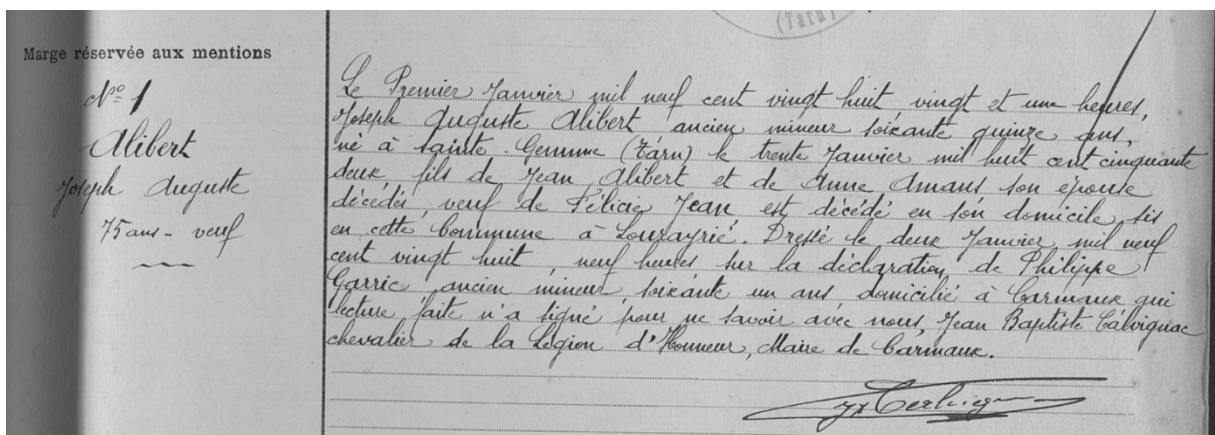 (Tarn)
Marge réservée aux mentions
N° 1
Alibert
Joseph Auguste
75 ans - veuf
Le Premier Janvier mil neuf cent vingt huit, vingt et une heures,
Joseph Auguste Alibert ancien mineur soixante quinze ans,
né à Sainte-Gemme (Tarn) le trente Janvier mil huit cent cinquante
deux, fils de Jean Alibert et de Anne Amans son épouse
décédés, veuf de Félicie Jean, est décédé en son domicile, sis
en cette Commune à Lourayrié. Dressé le deux Janvier mil neuf
cent vingt huit, neuf heures sur la déclaration de Philippe
Garric, ancien mineur, soixante un ans domicilié à Carmaux qui
lecture faite n'a signé pour ne savoir avec nous, Jean Baptiste Calvignac
chevalier de la Légion d'Honneur, Maire de Carmaux.